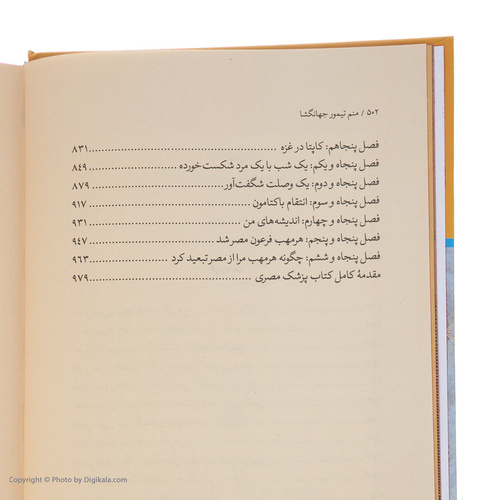 ۵۰۲ / منم تیمور جهانگشا
فصل پنجاهم: کاپتا در غزه ........................................ ۸۳۱
فصل پنجاه و یکم: یک شب با یک مرد شکست‌خورده ........................ ۸۴۹
فصل پنجاه و دوم: یک وصلت شگفت‌آور ................................ ۸۷۹
فصل پنجاه و سوم: انتقام باکتامون ................................ ۹۱۷
فصل پنجاه و چهارم: اندیشه‌های من ................................ ۹۳۱
فصل پنجاه و پنجم: هرمهب فرعون مصر شد ................................ ۹۴۷
فصل پنجاه و ششم: چگونه هرمهب مرا از مصر تبعید کرد ........................ ۹۶۳
مقدمهٔ کامل کتاب پزشک مصری ................................ ۹۷۹
Copyright © Photo by Digikala.com